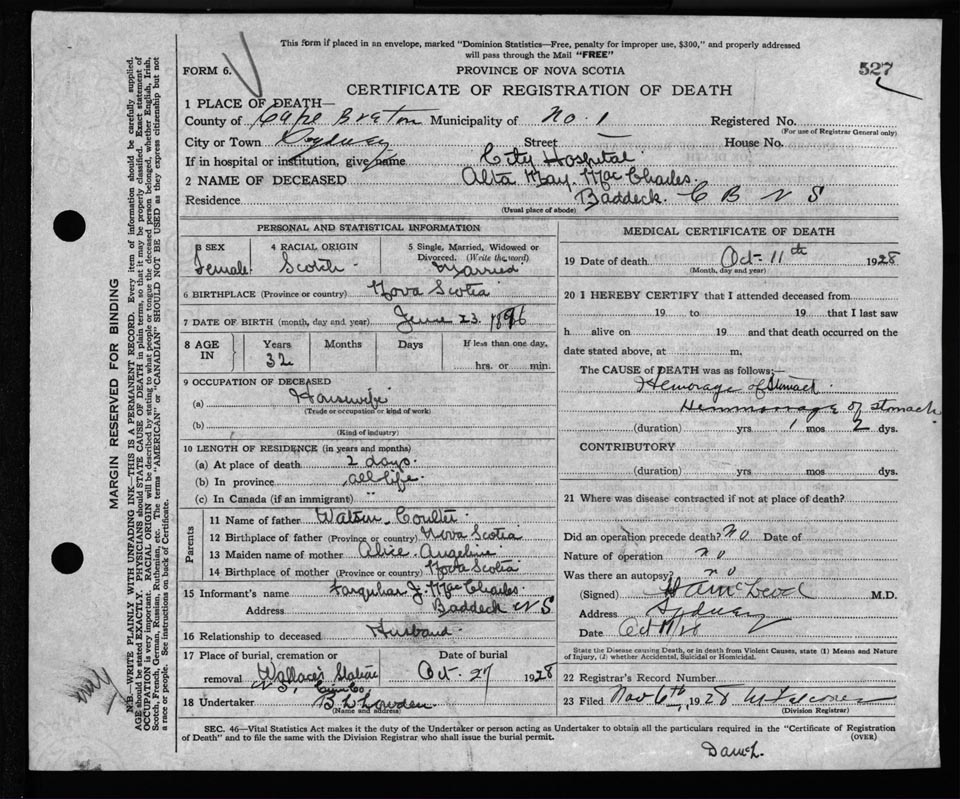 This form if placed in an envelope, marked "Dominion Statistics—Free, penalty for improper use, $300," and properly addressed
will pass through the Mail "FREE"
FORM 6.
PROVINCE OF NOVA SCOTIA
527
CERTIFICATE OF REGISTRATION OF DEATH
1 PLACE OF DEATH—
County of Cape Breton Municipality of No. 1 Registered No.
(For use of Registrar General only)
City or Town Sydney Street House No.
If in hospital or institution, give name City Hospital
2 NAME OF DECEASED Alta May. MacCharles.
Residence Baddeck. C B N S
(Usual place of abode)
PERSONAL AND STATISTICAL INFORMATION
3 SEX Female 4 RACIAL ORIGIN Scotch 5 Single, Married, Widowed or
Divorced. (Write the word)
Married
6 BIRTHPLACE (Province or country) Nova Scotia
7 DATE OF BIRTH (month, day and year) June 23. 1896
8 AGE IN Years 32 Months Days If less than one day,
hrs. or min.
9 OCCUPATION OF DECEASED
(a) Housewife
(Trade or occupation or kind of work)
(b)
(Kind of industry)
10 LENGTH OF RESIDENCE (in years and months)
(a) At place of death 2 days.
(b) In province all life.
(c) In Canada (if an immigrant) "
Parents
11 Name of father Coulter
12 Birthplace of father (Province or country) Nova Scotia
13 Maiden name of mother Alice. Angeline
14 Birthplace of mother (Province or country) Nova Scotia
15 Informant's name Farquhar J. MacCharles
Address Baddeck N S
16 Relationship to deceased Husband.
17 Place of burial, cremation or Date of burial
removal Wallace Oct. 27 1928
N S,
18 Undertaker
(Name and address)
MEDICAL CERTIFICATE OF DEATH
19 Date of death Oct- 11th 1928
(Month, day and year)
20 I HEREBY CERTIFY that I attended deceased from
19 to 19 that I last saw
h alive on 19 and that death occurred on the
date stated above, at m.
The CAUSE of DEATH was as follows:—
Hemorage of Stomach
Hemmorrage of stomach
(duration) yrs 1 mos 2 dys.
CONTRIBUTORY
(duration) yrs mos dys.
21 Where was disease contracted if not at place of death?
Did an operation precede death? No Date of
Nature of operation no
Was there an autopsy? no
(Signed) M.D.
Address Sydney
Date
State the Disease causing Death, or in death from Violent Causes, state (1) Means and Nature
of Injury, (2) whether Accidental, Suicidal or Homicidal.
22 Registrar's Record Number
23 Filed Nov 6th, 1928
(Division Registrar)
SEC. 46—Vital Statistics Act makes it the duty of the Undertaker or person acting as Undertaker to obtain all the particulars required in the "Certificate of Registration
of Death" and to file the same with the Division Registrar who shall issue the burial permit. (OVER)
MARGIN RESERVED FOR BINDING
N.B.—WRITE PLAINLY WITH UNFADING INK—THIS IS A PERMANENT RECORD. Every item of information should be carefully supplied.
AGE should be stated EXACTLY. PHYSICIANS should STATE CAUSE OF DEATH in plain terms, so that it may be properly classified. Exact statement of
OCCUPATION is very important. RACIAL ORIGIN will be described by stating to what people or tongue the deceased person belonged, whether English, Irish,
Scotch, French, German, Russian, Ruthenian, etc. The terms "AMERICAN" or "CANADIAN" SHOULD NOT BE USED as they express citizenship but not
a race or people. See instructions on back of Certificate.